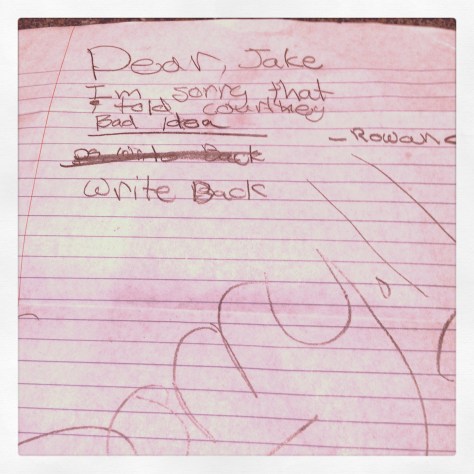 Dear, Jake
I'm sorry that
I told courtney
Bad idea
- Rowan
Write Back